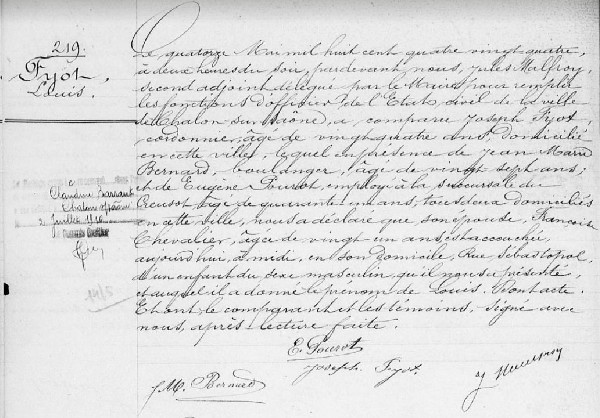 219.
Fyot
Louis.
Le quatorze Mai mil huit cent quatre vingt quatre,
à deux heures du soir, pardevant nous, Jules Malfroy,
second adjoint délégué par le Maire pour remplir
les fonctions d'officier de l'Etat civil de la ville
de Chalon sur Saône, a comparu Joseph Fyot,
cordonnier, âgé de vingt quatre ans, domicilié
en cette ville, lequel en présence de Jean Marie
Bernard, boulanger, âgé de vingt sept ans;
et de Eugène Pourrot, employé à la succursale du
Creusot âgé de quarante un ans, tous deux domiciliés
en cette ville, nous a déclaré que son épouse, Françoise
Chevalier, âgée de vingt un ans est accouchée,
aujourd'hui, à midi, en son domicile, Rue Sébastopol,
d'un enfant du sexe masculin qu'il nous a présenté,
et auquel il a donné le prénom de Louis. Dont acte.
Et ont le comparant et les témoins, signé avec
nous, après lecture faite.
E. Pourrot
Joseph Fyot.
J. M. Bernard
Claudine
Chalon s/Saône
2 Juillet 1910